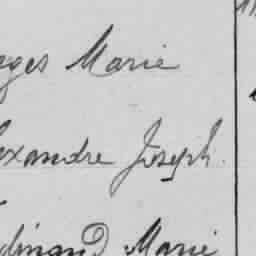 ges Marie
exandre Joseph
dinand Marie